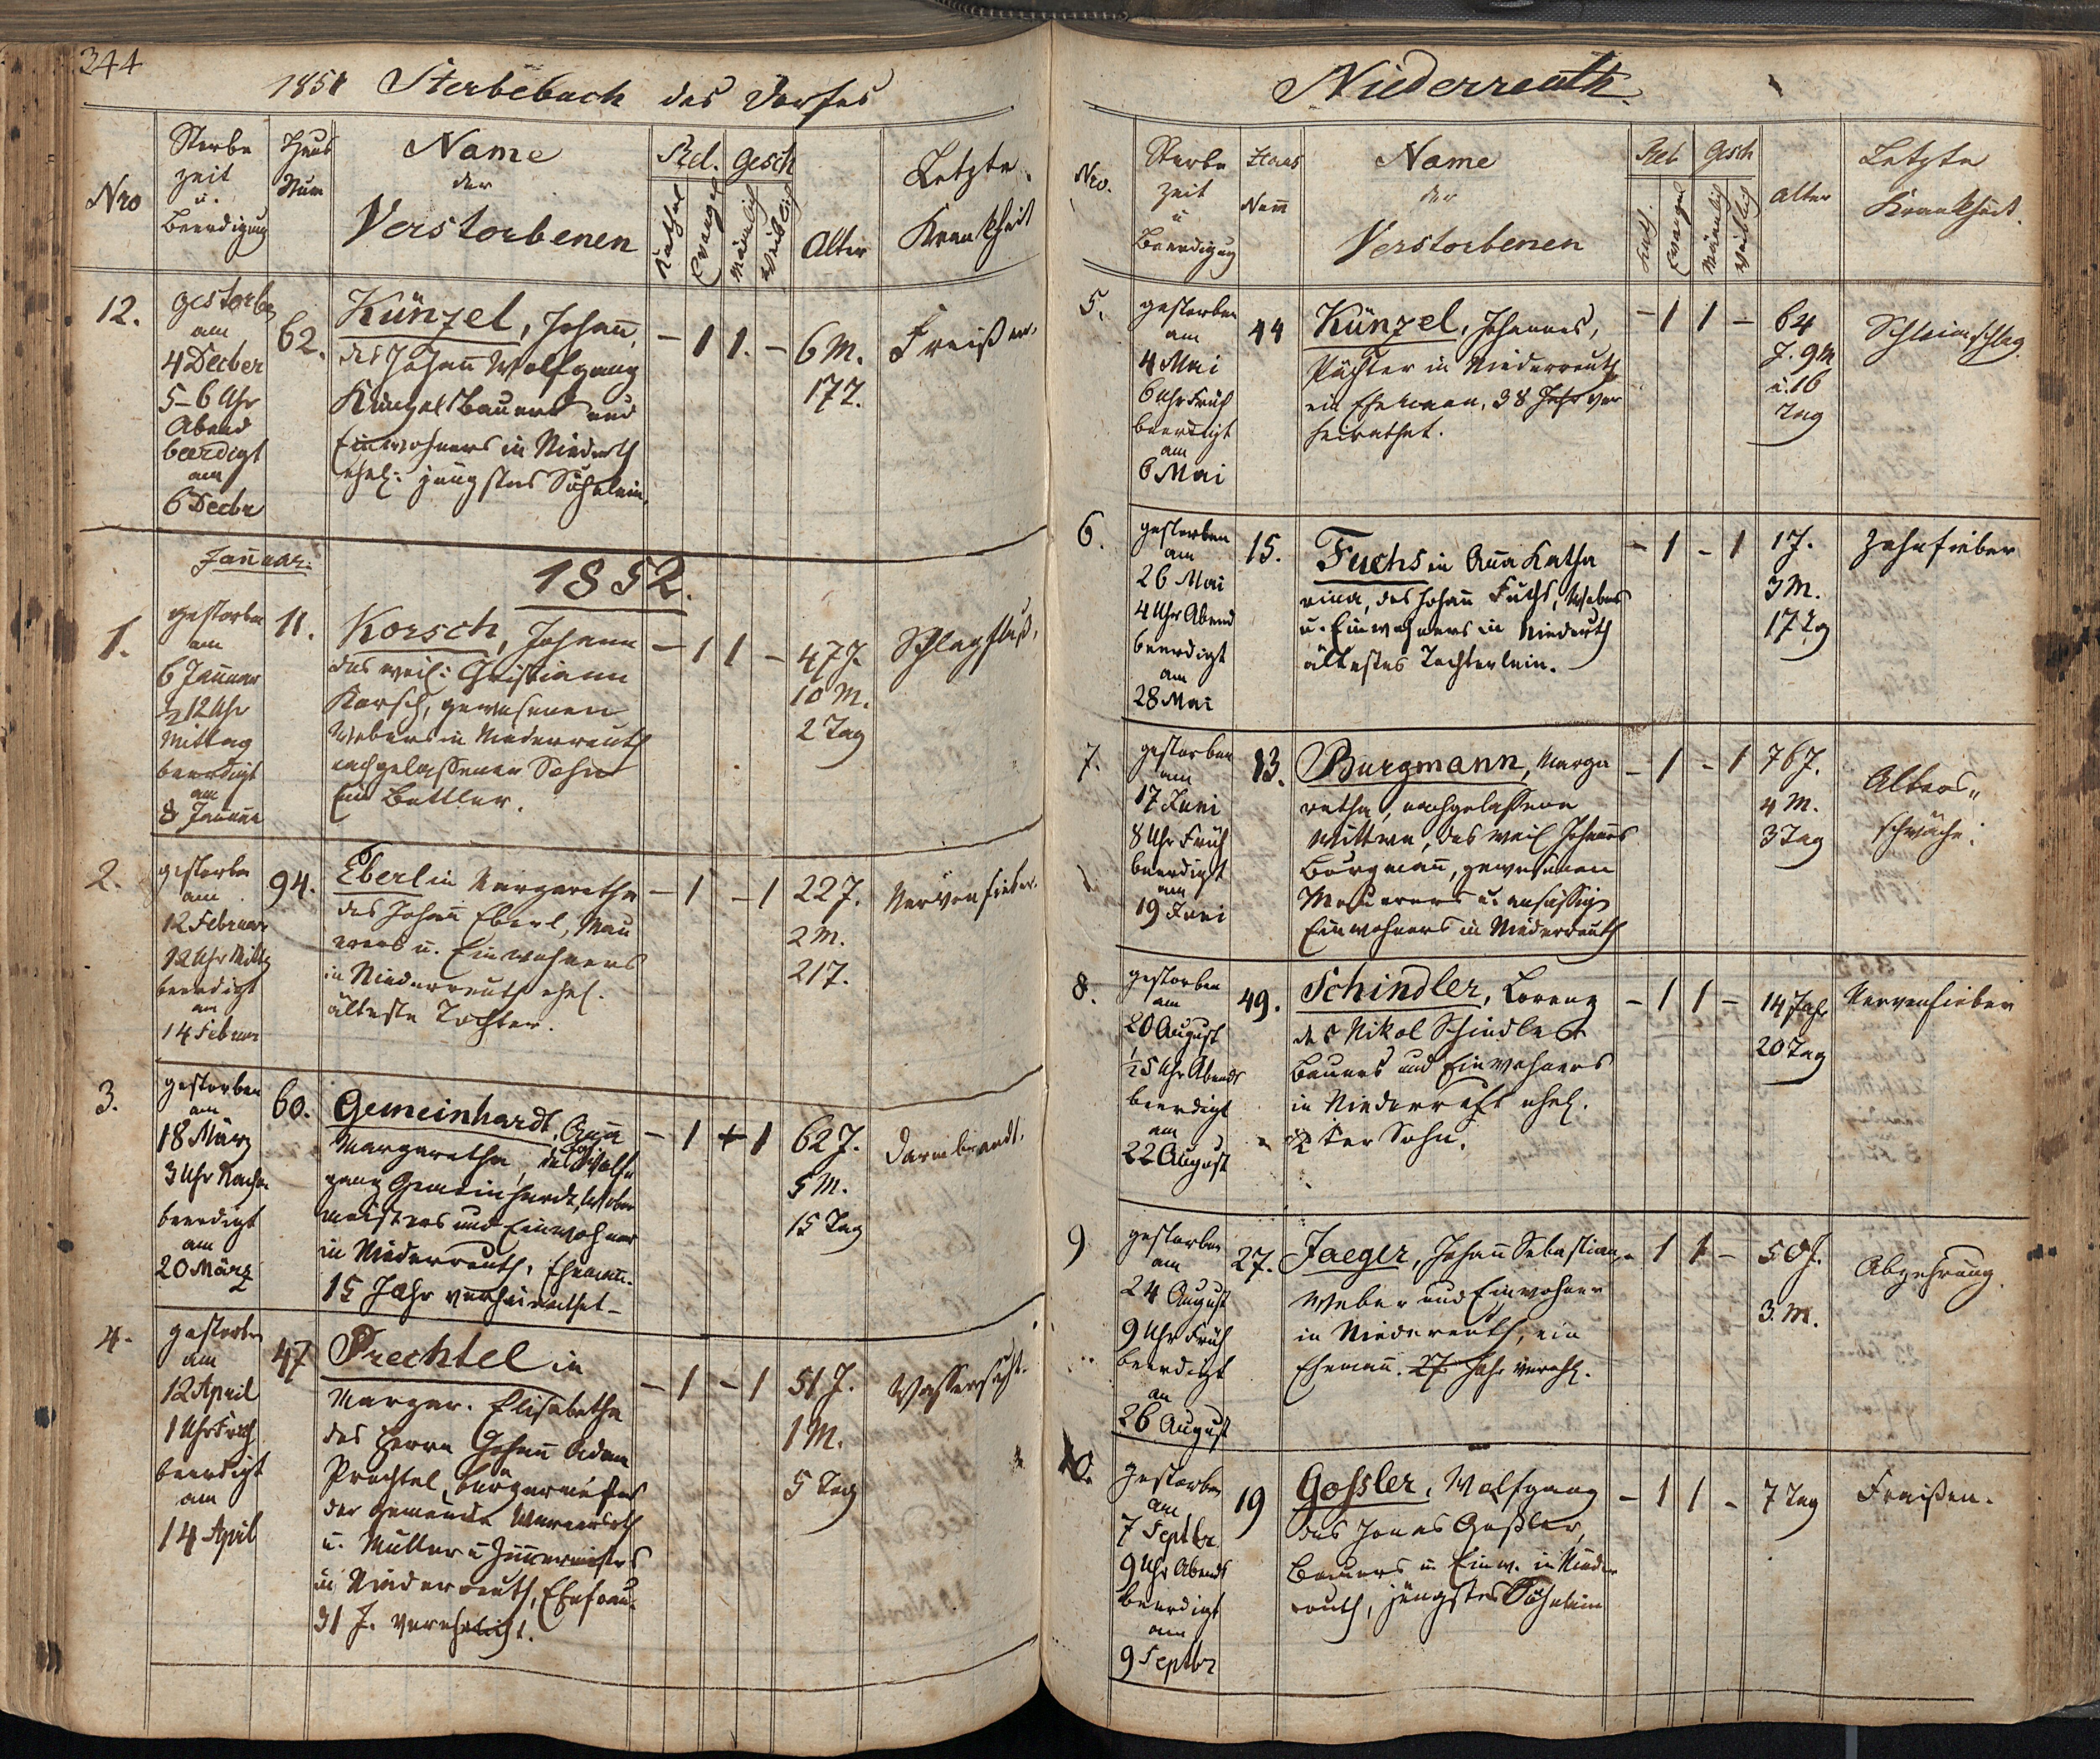 344
1851 Sterbebuch des Dorfes
Nro
Sterbe
zeit
u.
Beerdigung
Haus
Num
Name
der
Verstorbenen
Rel.
Kathol
Evangel
Gesch
Mänlich
Weiblich
Alter
Letzte
Krankheit
12.
gestorben
am
4 Decber
5–6 Uhr
Abend
beerdigt
am
6 Decbr
62.
Künzel, Johann,
des Johann Wolfgang
Künzels Bauers und
Einwohners in Niederrth
ehel: jüngstes Söhnlein.
– 1 1. –
6 M.
17 T.
Freißen.
Januar.
1852.
1.
gestorben
am
6 Januar
½12 Uhr
Mittag
beerdigt
am
8 Januar
11.
Korsch, Johann
des weil: Christian
Korsch, gewesenen
Webers in Niederreuth
nachgelassener Sohn
Ein Bettler.
– 1 1 –
47 J.
10 M.
2 Tag
Schlagfluß,
2.
gestorben
am
12 Februar
12 Uhr Mittg
beerdigt
am
14 Februar
94.
Eberlin Margaretha
des Johann Eberl, Mau
rers u. Einwohners
in Niederreuth ehel.
älteste Tochter.
– 1 – 1
22 J.
2 M.
21 T.
Nervenfieber.
3.
gestorben
am
18 März
3 Uhr Nachm
beerdigt
am
20 März
60.
Gemeinhardt, Anna
Margaretha, des Wolf
gang Gemeinhardt, Weber
meisters und Einwohner
in Niederreuth, Ehem.
15 Jahr verheirathet –
– 1 – 1
62 J.
5 M.
15 Tag
Darmbrandt.
4.
gestorben
am
12 April
1 Uhr Früh
beerdigt
am
14 April
47
Prechtel in
Margar. Elisabetha
des Herrn Johann Adam
Prechtel, Bürgermeisters
der Gemeinde Wernersrth
u. Müller u Zimmermeisters
in Niederreuth, Ehefrau.
31 J. verehelicht.
– 1 – 1
51 J.
1 M.
5 Tag
Wassersucht.
Niederreuth.
Nro.
Sterbe
zeit
u
Beerdigug
Haus
Num
Name
der
Verstorbenen
Rel
Kath.
Evangel
Gesch
Mänlich
Weiblich
Alter
Letzte
Krankheit.
5.
gestorben
am
4 Mai
6 Uhr Früh
beerdigt
am
6 Mai
44
Künzel, Johannes,
Pächter in Niederreuth
ein Ehemann, 38 Jahr ver
heirathet.
– 1 1 –
64
J. 9 M
u. 16
Tag
Schleimschlag.
6.
gestorben
am
26 Mai
4 Uhr Abend
beerdigt
am
28 Mai
15.
Fuchsin Anna Katha
rina, des Johann Fuchs, Webers
u. Einwohners in Niederrth
ältestes Tochterlein.
– 1 – 1
1 J.
3 M.
17 Tg
Zahnfieber
7.
gestorben
am
17 Juni
8 Uhr Früh
beerdigt
am
19 Juni
13.
Burgmann, Marga
retha, nachgelassene
Wittwe, des weil Johannes
Burgmann, gewesenen
Maurers u. ansässig
Einwohners in Niederreuth
– 1 – 1
76 J.
4 M.
3 Tag
Alters„
schwäche.
8.
gestorben
am
20 August
½5 Uhr Abends
beerdigt
am
22 August
49.
Schindler, Lorenz
des Nikol Schindler
Bauers und Einwohners
in Niederreuth ehel.
2 ter Sohn.
– 1 1 –
14 Jahr
20 Tag
Nervenfieber
9
gestorben
am
24 August
9 Uhr Früh
beerdigt
am
26 August
27.
Jaeger, Johann Sebastian,
Weber und Einwohner
in Niederreuth, ein
Ehemann. 27 Jahr verehl.
– 1 1 –
50 J.
3. M.
Abzehrung.
10.
gestorben
am
7 Septbr
9 Uhr Abends
beerdigt
am
9 Septbr
19
Gossler, Wolfgang
des Jonas Goßler,
Bauers u Einw. in Nieder
reuth, jüngstes Söhnlein
– 1 1 –
7 Tag
Fraißen.